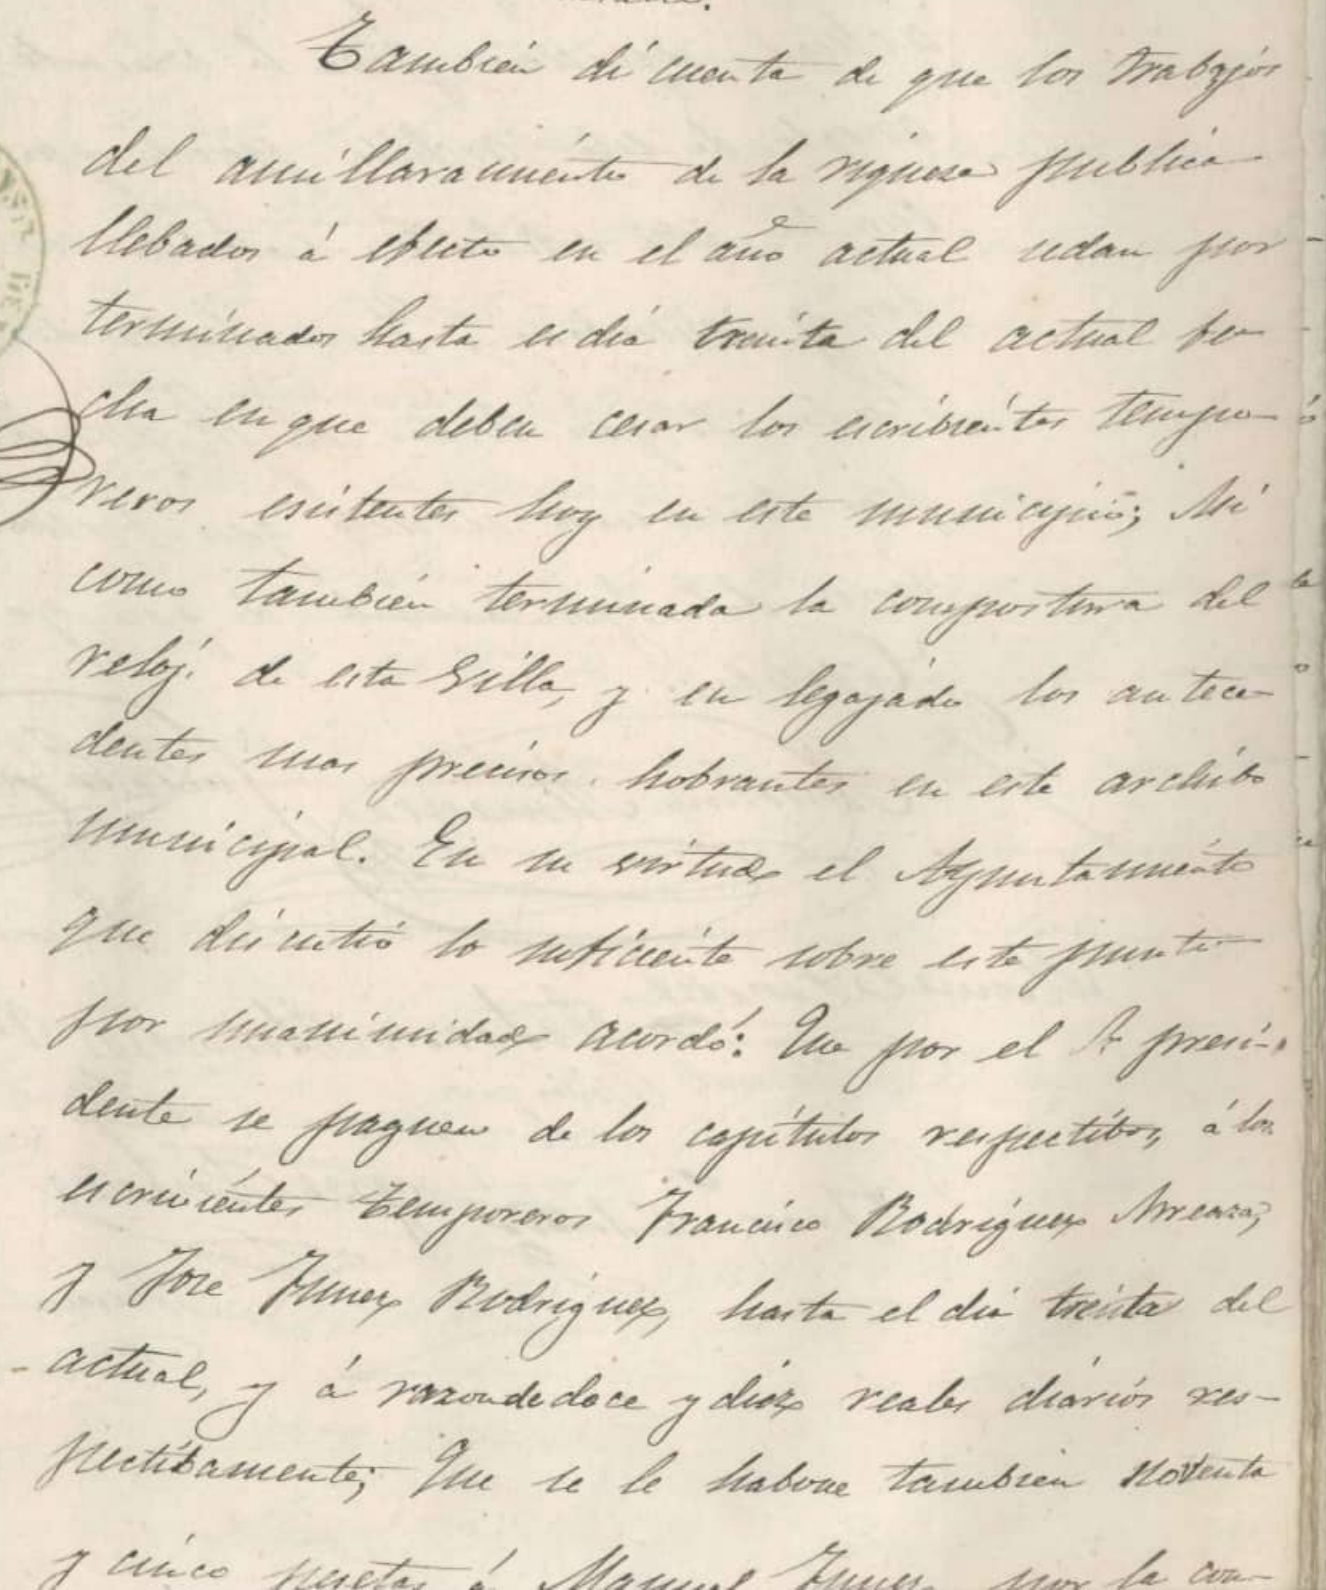 También di cuenta de que los trabajos
del amillaramiento de la riquesa publica
llebados á efecto en el año actual sedan por
terminados hasta el dia treinta del actual fe-
cha en que deben cesar los escribientes tempo-
reros esistentes hoy en este municipio; Asi
como también terminada la compostura del
reloj. de esta Villa, y en legajado los antece-
dentes mas precisos hobrantes en este archibo
municipal. En su virtud el Ayuntamiento
que discutió lo suficiente sobre este punto
por unanimidad acordó: Que por el Sr presi-
dente se paguen de los capítulos respectibos, á los
escrivientes temporeros Francisco Rodriguez Arreaza,
y Jose Funez Rodriguez, hasta el dia treinta del
actual, y á razon de doce y diez reales diarios res-
pectibamente; Que se le habone tambien noventa
y cinco pesetas á Manuel Funez por la com-